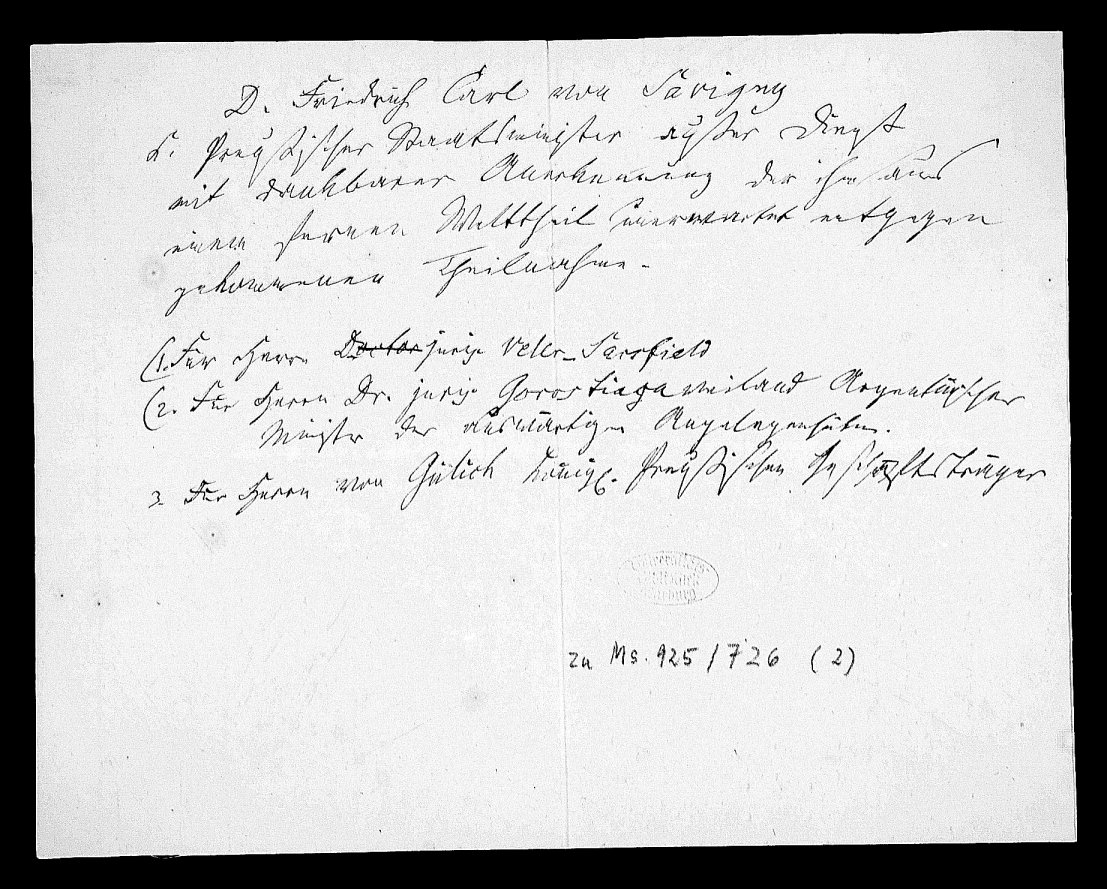 D. Friedrich Carl von Savigny
K. Preußischer Staatsminister außer Dienst
mit dankbarer Anerkennung der ihm aus
einem fernen Welttheil unerwartet entgegen
gekommenen Theilnahme.
(1. Für Herrn Doctor juris Velez-Sarsfield
(2. Für Herrn Dr. juris Gorostiaga weiland Argentinischer
Minister der auswärtigen Angelegenheiten.
3. Für Herrn von Gülich Königl. Preußischen Geschäftsträger
Universitäts-
Bibliothek
Marburg
zu Ms. 925/726 (2)